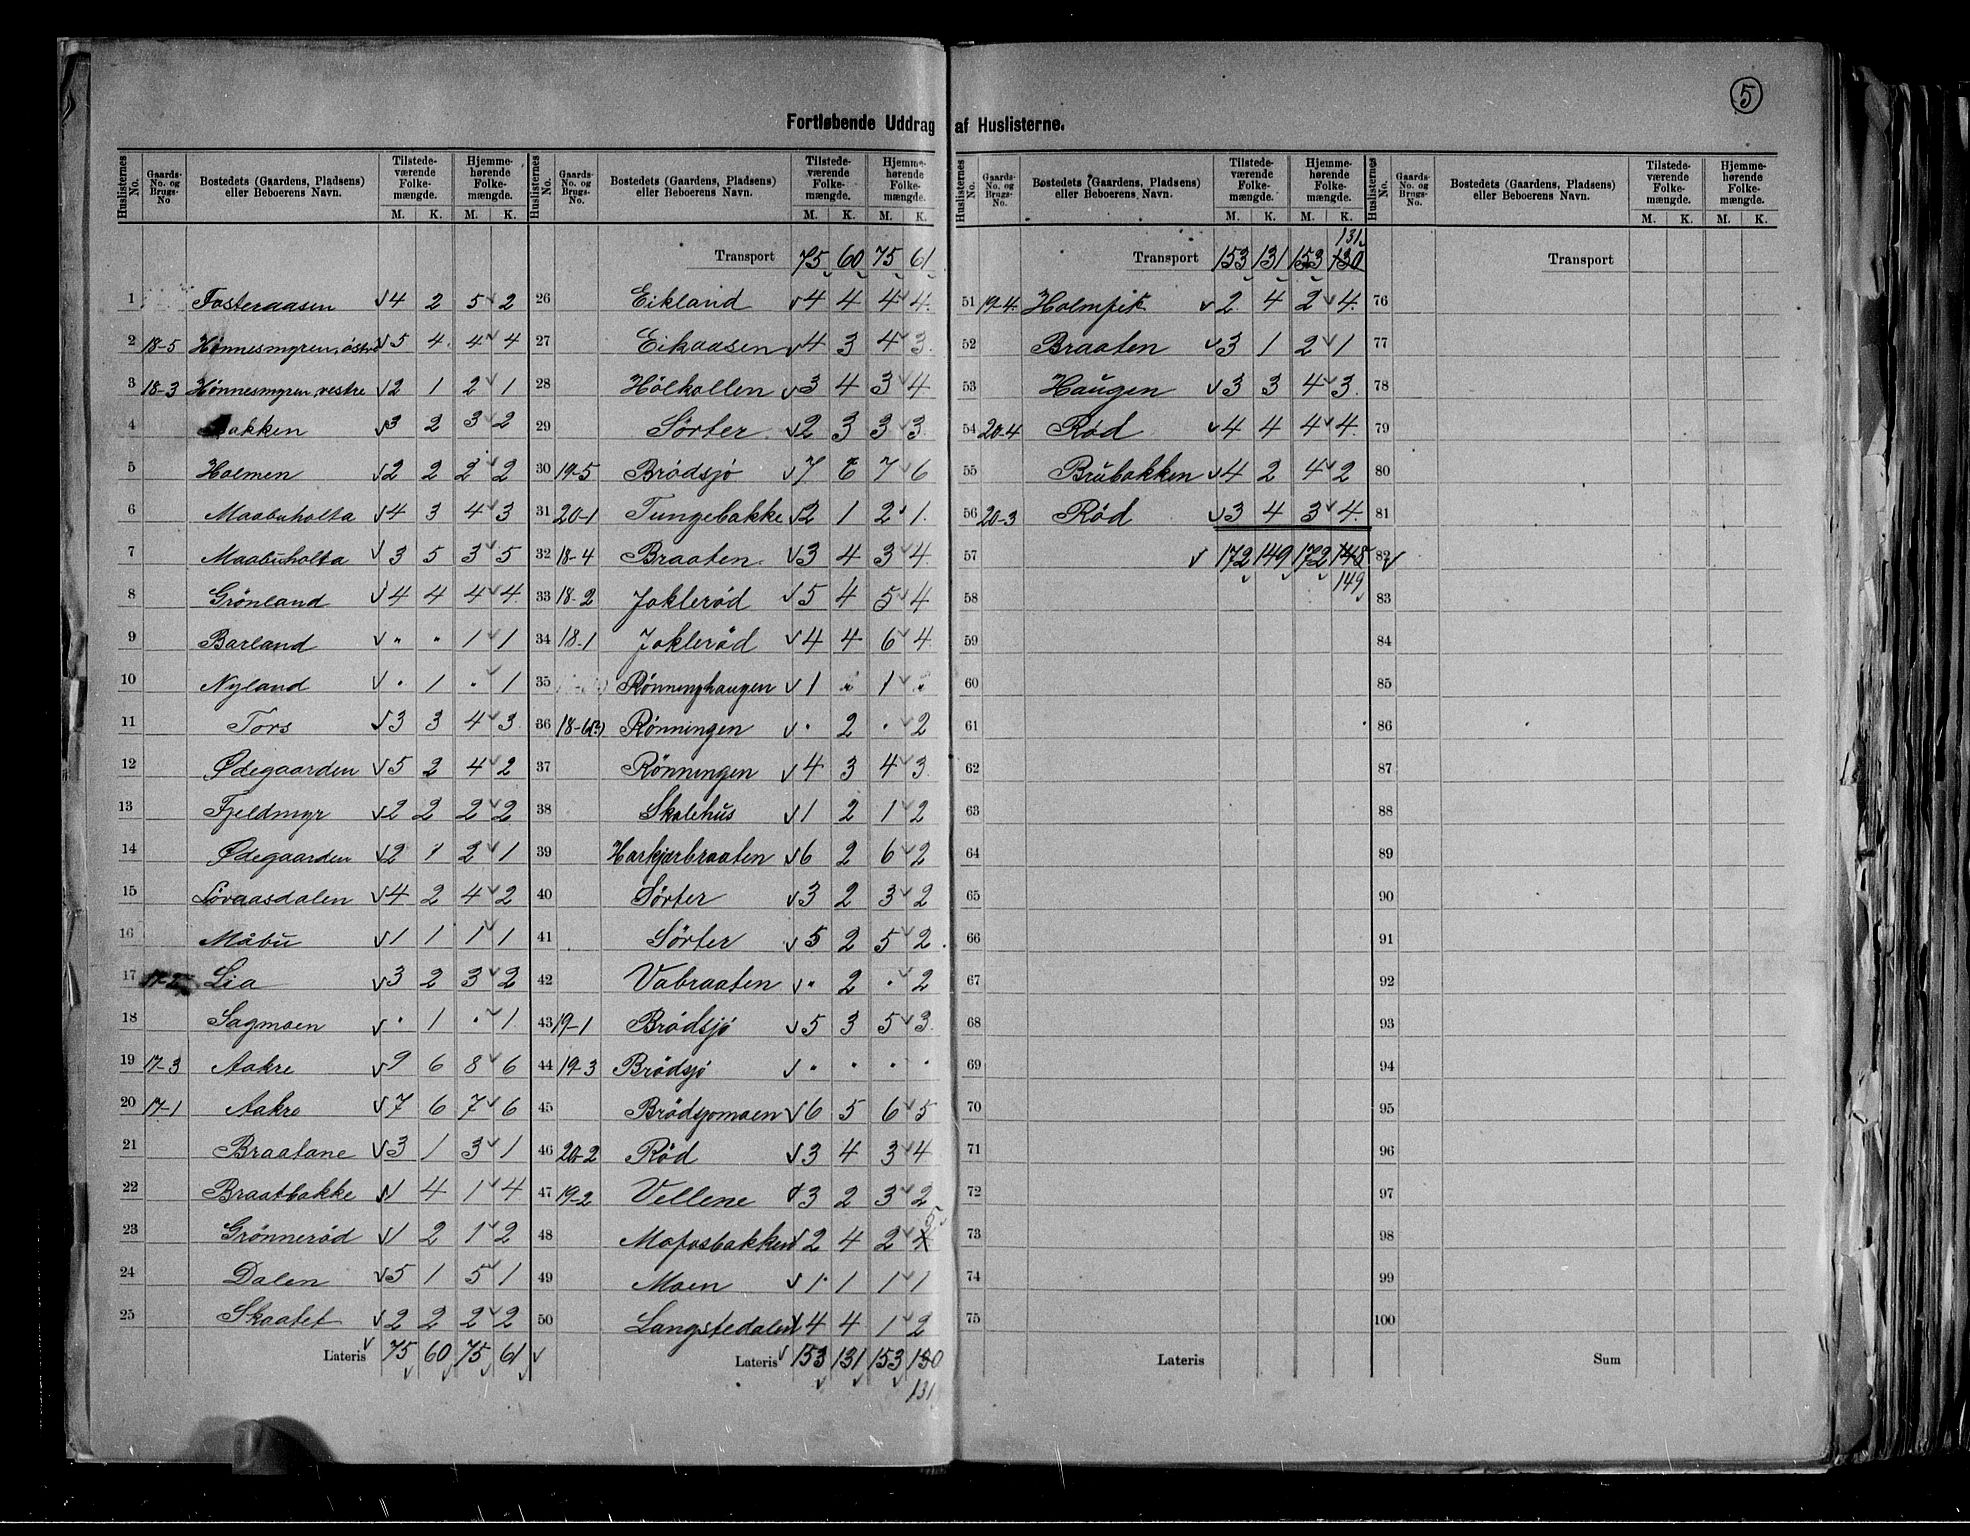 5
Fortløbende Uddrag af Huslisterne.
Huslisternes No. | Gaards-No. og Brugs-No | Bostedets (Gaardens, Pladsens) eller Beboerens Navn. | Tilstedeværende Folkemængde. M. K. | Hjemmehørende Folkemængde. M. K.
1 Fosteraasen 4 2 5 2
2 18-5 Hønnesmyren, østre 5 4 4 4
3 18-3 Hønnesmyren, vestre 2 1 2 1
4 Bakken 3 2 3 2
5 Holmen 2 2 2 2
6 Maabuholta 4 3 4 3
7 Maabuholta 3 5 3 5
8 Grönland 4 4 4 4
9 Barland " " 1 1
10 Nyland " 1 " 1
11 Tors 3 3 4 3
12 Ødegaarden 5 2 4 2
13 Fjeldmyr 2 2 2 2
14 Ødegaarden 2 1 2 1
15 Lövaasdalen 4 2 4 2
16 Måbu 1 1 1 1
17 17-2 Lia 3 2 3 2
18 Sagmoen " 1 " 1
19 17-3 Aakre 9 6 8 6
20 17-1 Aakre 7 6 7 6
21 Braatane 3 1 3 1
22 Braatbakke 1 4 1 4
23 Grönneröd 1 2 1 2
24 Dalen 5 1 5 1
25 Skaatet 2 2 2 2
Lateris 75 60 75 61
Huslisternes No. | Gaards-No. og Brugs-No. | Bostedets (Gaardens, Pladsens) eller Beboerens Navn. | Tilstedeværende Folkemængde. M. K. | Hjemmehørende Folkemængde. M. K.
Transport 75 60 75 61
26 Eikland 4 4 4 4
27 Eikaasen 4 3 4 3
28 Hölkollen 3 4 3 4
29 Sörter 2 3 3 3
30 19-5 Brödsjö 7 6 7 6
31 20-1 Tungebakke 2 1 2 1
32 18-4 Braaten 3 4 3 4
33 18-2 Jokleröd 5 4 5 4
34 18-1 Jokleröd 4 4 6 4
35 Rönninghaugen 1 " 1 "
36 18-6 Rönningen " 2 " 2
37 Rönningen 4 3 4 3
38 Skolehus 1 2 1 2
39 Harkjærbraaten 6 2 6 2
40 Sörter 3 2 3 2
41 Sörter 5 2 5 2
42 Vabraaten " 2 " 2
43 19-1 Brödsjö 5 3 5 3
44 19-3 Brödsjö " " " "
45 Brödsjomoen 6 5 6 5
46 20-2 Röd 3 4 3 4
47 19-2 Vellene 3 2 3 2
48 Mofosbakken 2 4 2 4 5
49 Moen 1 1 1 1
50 Langstedalen 4 4 1 2
Lateris 153 131 153 130
131
Huslisternes No. | Gaards-No. og Brugs-No. | Bostedets (Gaardens, Pladsens) eller Beboerens Navn. | Tilstedeværende Folkemængde. M. K. | Hjemmehørende Folkemængde. M. K.
131
Transport 153 131 153 130
51 19-4 Holmfik 2 4 2 4
52 Braaten 3 1 2 1
53 Haugen 3 3 4 3
54 20-4 Röd 4 4 4 4
55 Brubakken 4 2 4 2
56 20-3 Röd 3 4 3 4
57 172 149 172 148
149
58
59
60
61
62
63
64
65
66
67
68
69
70
71
72
73
74
75
Lateris
Huslisternes No. | Gaards-No. og Brugs-No. | Bostedets (Gaardens, Pladsens) eller Beboerens Navn. | Tilstedeværende Folkemængde. M. K. | Hjemmehørende Folkemængde. M. K.
Transport
76
77
78
79
80
81
82
83
84
85
86
87
88
89
90
91
92
93
94
95
96
97
98
99
100
Sum